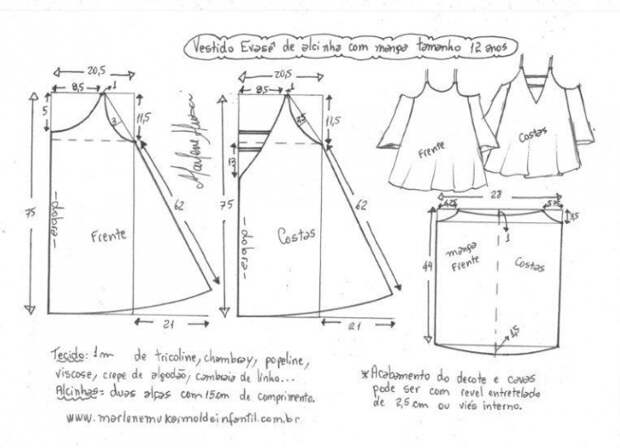 Vestido Evasê de alcinha com manga tamanho 12 anos
20,5
8,5
1
5
3
11,5
75
-dobra-
Frente
62
21
Marlene Mukai
20,5
8,5
1
2,5
11,5
13
75
-dobra-
Costas
62
21
Frente
Costas
28
3,5
1
44
manga
Frente
Costas
1,5
Tecido: 1m de tricoline, chambray, popeline,
viscose, crepe de algodão, cambraia de linho...
Alcinhas = duas alças com 15cm de comprimento.
www.marlenemukaimoldeinfantil.com.br
*Acabamento do decote e cavas
pode ser com revel entretelado
de 2,5 cm ou viés interno.